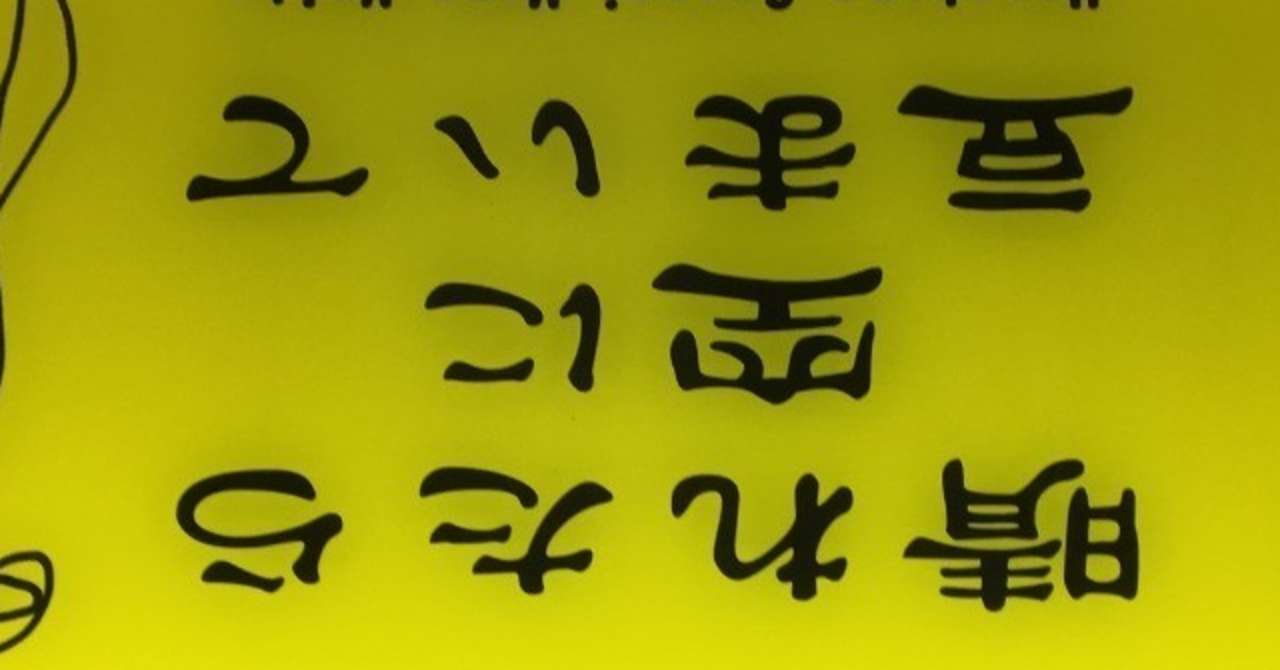 晴れたら
空に
豆まいて